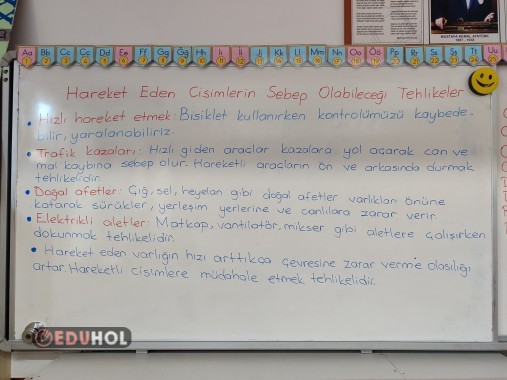 Aa Bb Cc Çç Dd Ee Ff Gg Ğğ Hh Iı İi Jj Kk Ll Mm Nn Oo Öö Pp Rr Ss Şş Tt Uu
MUSTAFA KEMAL ATATÜRK
1881 - 1938
Hareket Eden Cisimlerin Sebep Olabileceği Tehlikeler
• Hızlı hareket etmek: Bisiklet kullanırken kontrolümüzü kaybede-
bilir, yaralanabiliriz.
• Trafik kazaları: Hızlı giden araçlar kazalara yol açarak can ve
mal kaybına sebep olur. Hareketli araçların ön ve arkasında durmak
tehlikelidir.
• Doğal afetler: Çığ, sel, heyelan gibi doğal afetler varlıkları önüne
katarak sürükler, yerleşim yerlerine ve canlılara zarar verir.
• Elektrikli aletler: Matkap, vantilatör, mikser gibi aletlere çalışırken
dokunmak tehlikelidir.
• Hareket eden varlığın hızı arttıkça çevresine zarar verme olasılığı
artar. Hareketli cisimlere müdahale etmek tehlikelidir.
EDUHOL